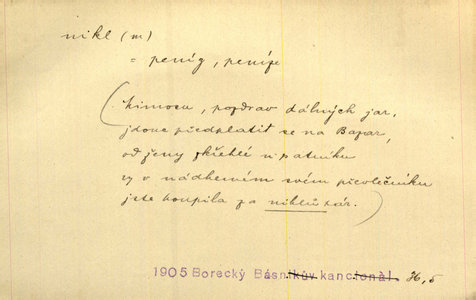 nikl (m)
= peníz, peníze
(kimosu, pozdrav dálných jar,
jdouc předplatit se na Bazar,
od ženy zkřehlé u patníku
vy v nádherném svém převlečníku
jste koupila za niklů pár.)
1905 Borecký Básníkův kancionàl. H, 5